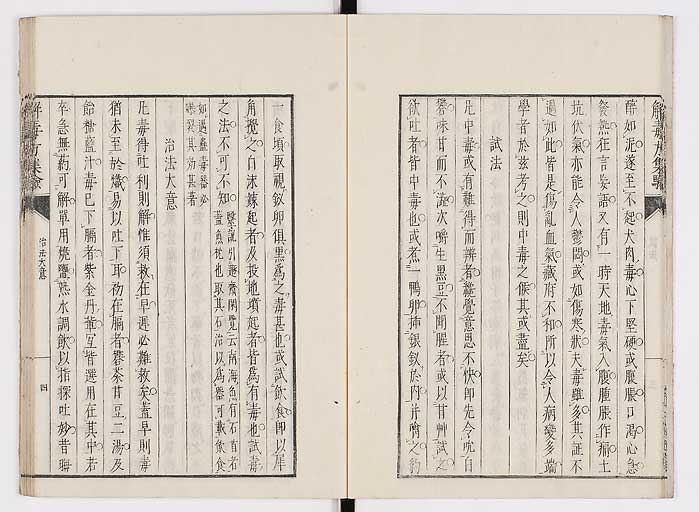 醉如泥遂至不起犬肉毒心下堅硬或腹脹口渴心急
發熱狂言妄語又有一時天地毒氣入腹腫脹作痛土
坑伏氣亦能令人鬱悶或如傷寒狀夫毒雖多其証不
過如此皆是傷亂血氣藏府不和所以令人病變多端
學者於玆考之則中毒之候其或盡矣
試法
凡中毒或有難得而辨者纔覺意思不快即先令吮白
礬味甘而不澁次嚼生黑豆不聞腥者或以甘艸試之
欲吐者皆中毒也或煮一鴨卵挿銀釵於內并嚼之約
一食頃取視釵卵俱黑爲之毒甚也或試飲食即以犀
角攪之白沫竦起者及投地墳起者皆爲有毒也試毒
之法不可不知
如遇蠱毒器必
治法大意
凡毒得吐利則解惟須救在早遲必難救矣蓋早則毒
猶未至於熾易以吐下耳礿在膈者礬茶甘豆二湯及
飴糖藍汁毒已下膈者紫金丹
皆選用在其中若
卒急無藥可解單用燒鹽熟水調飲以指探吐妙昔
解毒方集驗
治法大意
四